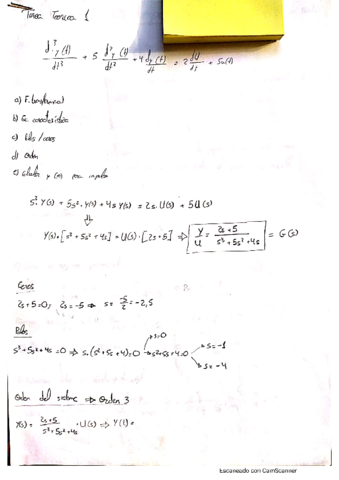 Tarea Teorica 1
d³y(t)/dt³ + 5 d²y(t)/dt² + 4 dy(t)/dt = 2 dU/dt + 5u(t)
a) F. transferencia
b) Ec. característica
c) Polos/ceros
d) Orden
e) y(∞) para impulso
s³ Y(s) + 5s² Y(s) + 4s Y(s) = 2s U(s) + 5U(s)
Y(s)·[s³+5s²+4s] = U(s)·[2s+5] ⇒ Y/U = 2s+5/s³+5s²+4s = G(s)
Ceros
2s+5=0; 2s=-5 ⇒ s= -5/2 = -2,5
Polos
s=0
s³+5s²+4s=0 ⇒ s·(s²+5s+4)=0 s²+5s+4=0 s=-1
s=-4
Orden del sistema ⇒ Orden 3
Y(s) = 2s+5/s³+5s²+4s · U(s) ⇒ Y(t)=
Escaneado con CamScanner